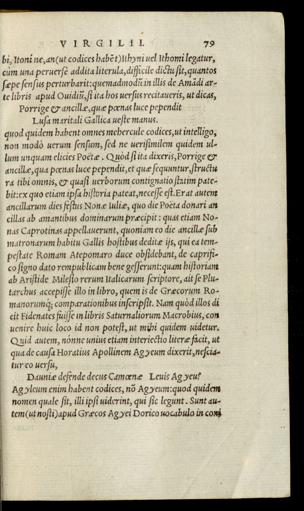 VIRGILII. 79
bi, Itoni ne, an (ut codices habēt) Ithyni uel Ithomi legatur,
cùm una peruersè addita literula, difficile dictu sit, quantos
sæpe sensus perturbarit: quemadmodū in illis de Amādi ar-
te libris apud Ouidiū, si ita hos uersus recitaueris, ut dicas,
Porrige & ancillæ, quæ pœnas luce pependit
Lusa maritali Gallica ueste manus.
quod quidem habent omnes mehercule codices, ut intelligo,
non modò uerum sensum, sed ne uerisimilem quidem ul-
lum unquam elicies Poëtæ. Quòd si ita dixeris, Porrige &
ancillæ, qua pœnas luce pependit, et quæ sequuntur, structu
ra tibi omnis, & quasi uerborum contignatio statim pate-
bit: ex quo etiam ipsa historia pateat, necesse est. Erat autem
ancillarum dies festus Nonæ Iuliæ, quo die Poëta donari an
cillas ab amantibus dominarum præcipit: quas etiam No-
nas Caprotinas appellauerunt, quoniam eo die ancillæ sub
matronarum habitu Gallis hostibus deditæ ijs, qui ea tem-
pestate Romam Atepomaro duce obsidebant, de caprifi-
co signo dato rempublicam bene gesserunt: quam historiam
ab Aristide Milesio rerum Italicarum scriptore, ait se Plu-
tarchus accepisse illo in libro, quem is de Græcorum Ro-
manorumq; comparationibus inscripsit. Nam quòd illos di
cit Fidenates fuisse in libris Saturnaliorum Macrobius, con
uenire huic loco id non potest, ut mihi quidem uidetur.
Quid autem, nónne unius etiam interiectio literæ facit, ut
qua de causa Horatius Apollinem Agyeum dixerit, nescia-
tur eo uersu,
Dauniæ defende decus Camœnæ Leuis Agyeu?
Agyleum enim habent codices, nō Agyeum: quod quidem
nomen quale sit, illi ipsi uiderint, qui sic legunt. Sunt au-
tem (ut nosti) apud Græcos Agyei Dorico uocabulo in coni